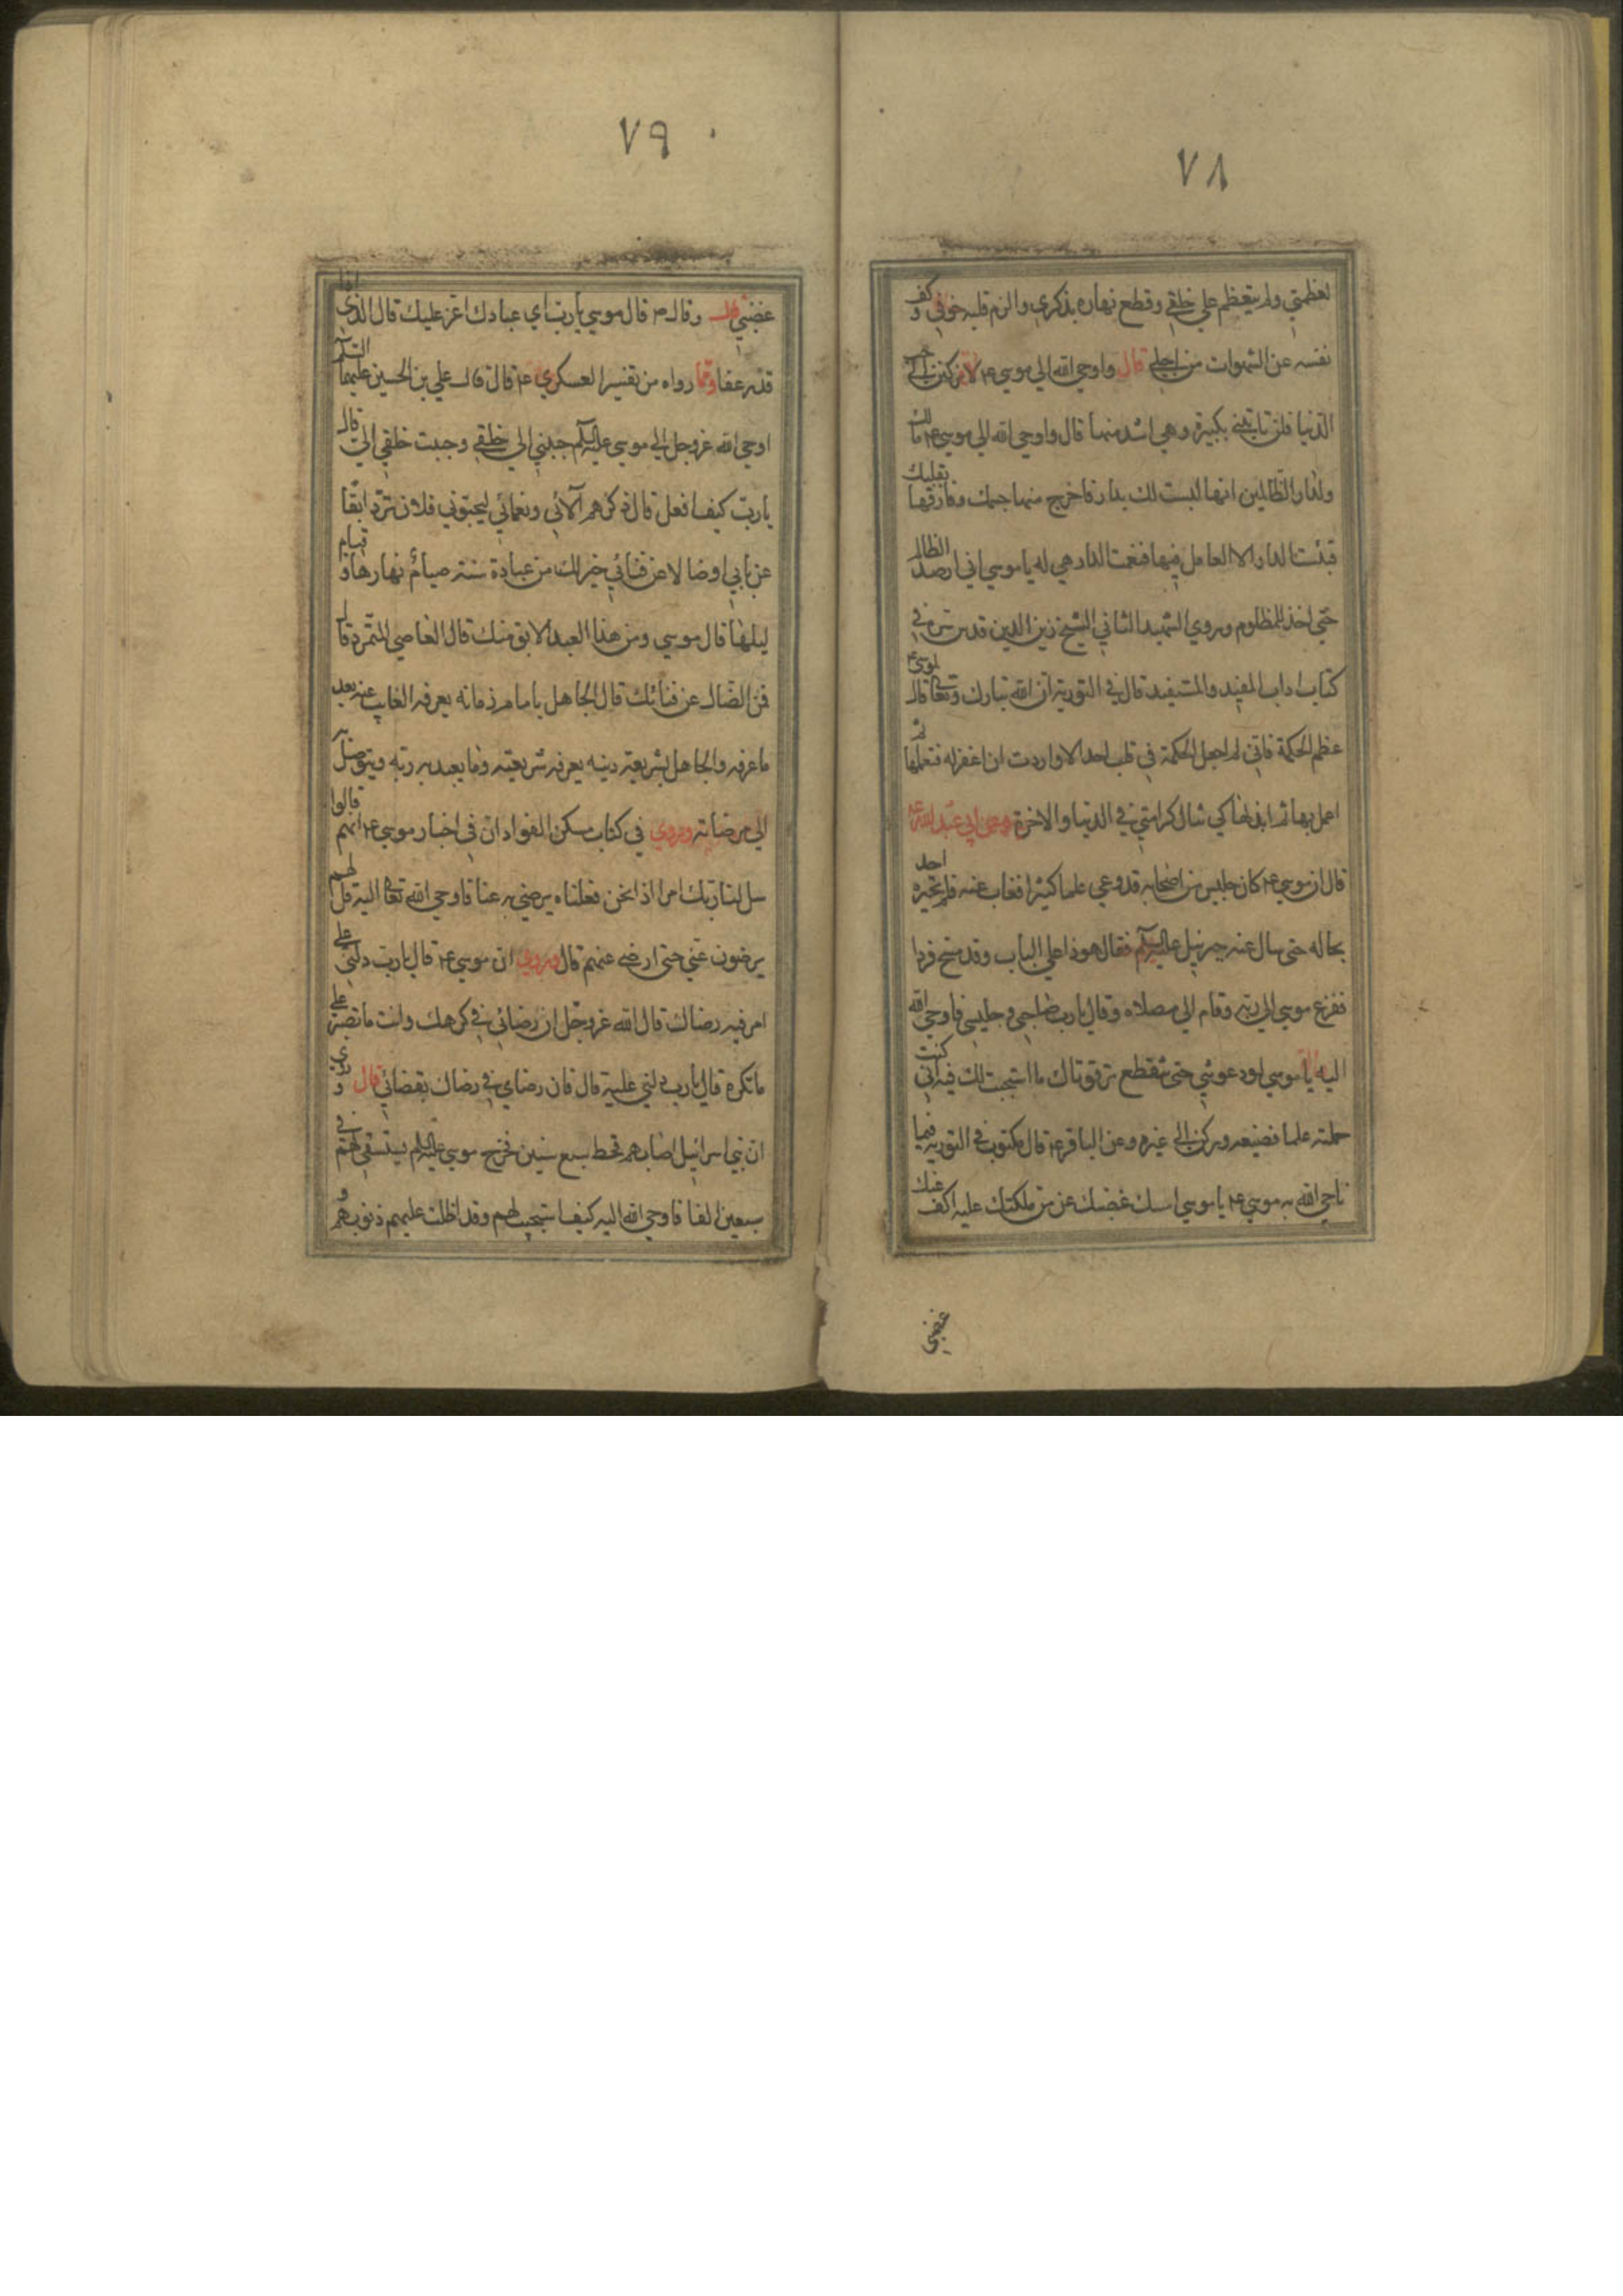 ٧٨
لعظمتي ولم يتعظم علي خلقي وقطع نهاره بذكري والزم قلبه خوفي وكف
نفسه عن الشهوات من اجلي قال واوحي الله الي موسي ع لا تركنن الي حب
الدنيا فلن تاتيني بكبيرة وهي اشد منها قال واوحي الله الي موسي ع ما لك
ولدار الظالمين انها ليست لك بدار فاخرج منها همك وفارقها بقلبك
فبئست الدار الا العامل فيها فنعمت الدار هي له يا موسي اني ارصد الظالم
حتي اخذ للمظلوم وروي الشهيد الثاني الشيخ زين الدين قدس سره في
كتاب اداب المفيد والمستفيد قال في التورية ان الله تبارك وتعا قال لموسي ع
عظم الحكمة فاني لم اجعل الحكمة في قلب احد الا واردت ان اغفر له فتعلمها ثم
اعمل بها ثم ابذلها كي تنال كرامتي في الدنيا والاخرة وعن ابي عبد الله ع
قال ان موسي ع كان جليس من اصحابه قد وعي علما كثيرا فغاب عنه فلم يخبره احد
بحاله حتي سال عنه جبرئيل عليه السلم فقال هو ذا علي الباب وقد مسخ قردا
ففزع موسي الي ربه وقام الي مصلاه وقال يا رب صاحبي وجليسي فاوحي الله
اليه يا موسي لو دعوتني حتي تنقطع ترقوتاك ما استجبت لك فيه اني كنت
حملته علما فضيعه وركن الي غيره وعن الباقر ع قال مكتوب في التورية فيما
ناجي الله به موسي ع يا موسي امسك غضبك عن من ملكتك عليه اكف عنك
غضبي
٧٩
غضبي قال وقال ص قال موسي يا رب اي عبادك اعز عليك قال الذي اذا
قدر عفا ومما رواه من تفسير العسكري ع قال قال علي بن الحسين عليهما السلم
اوحي الله عز وجل الي موسي عليه السلم حببني الي خلقي وحبب خلقي الي قال
يا رب كيف افعل قال ذكرهم آلائي ونعمائي ليحبوني فلان ترد ابقا
عن بابي او ضالا عن فنائي خير لك من عبادة سنة صيام نهارها وقيام
ليلها قال موسي ومن هذا العبد الابق منك قال العاصي المتمرد قال
فمن الضال عن فنائك قال الجاهل بامام زمانه يعرفه الغايب عنه بعد
ما عرفه والجاهل بشريعة دينه يعرفه شريعته وما يعبد به ربه ويتوصل به
الي مرضاته وروي في كتاب مسكن الفواد ان في اخبار موسي ع انهم قالوا
سل لنا ربك امرا اذا نحن فعلناه يرضي به عنا فاوحي الله تعا اليه قل لهم
يرضون عني حتي ارضي عنهم قال وروي ان موسي ع قال يا رب دلني علي
امر فيه رضاك قال الله عز وجل ان رضائي في كرهك وانت ما تصبر علي
ما تكره قال يا رب دلني عليه قال فان رضاي في رضاك بقضائي قال وروي
ان بني اسرائيل اصابهم قحط سبع سنين فخرج موسي عليه السلم يستسقي لهم في
سبعين الفا فاوحي الله اليه كيف استجيب لهم وقد اظلت عليهم ذنوبهم و